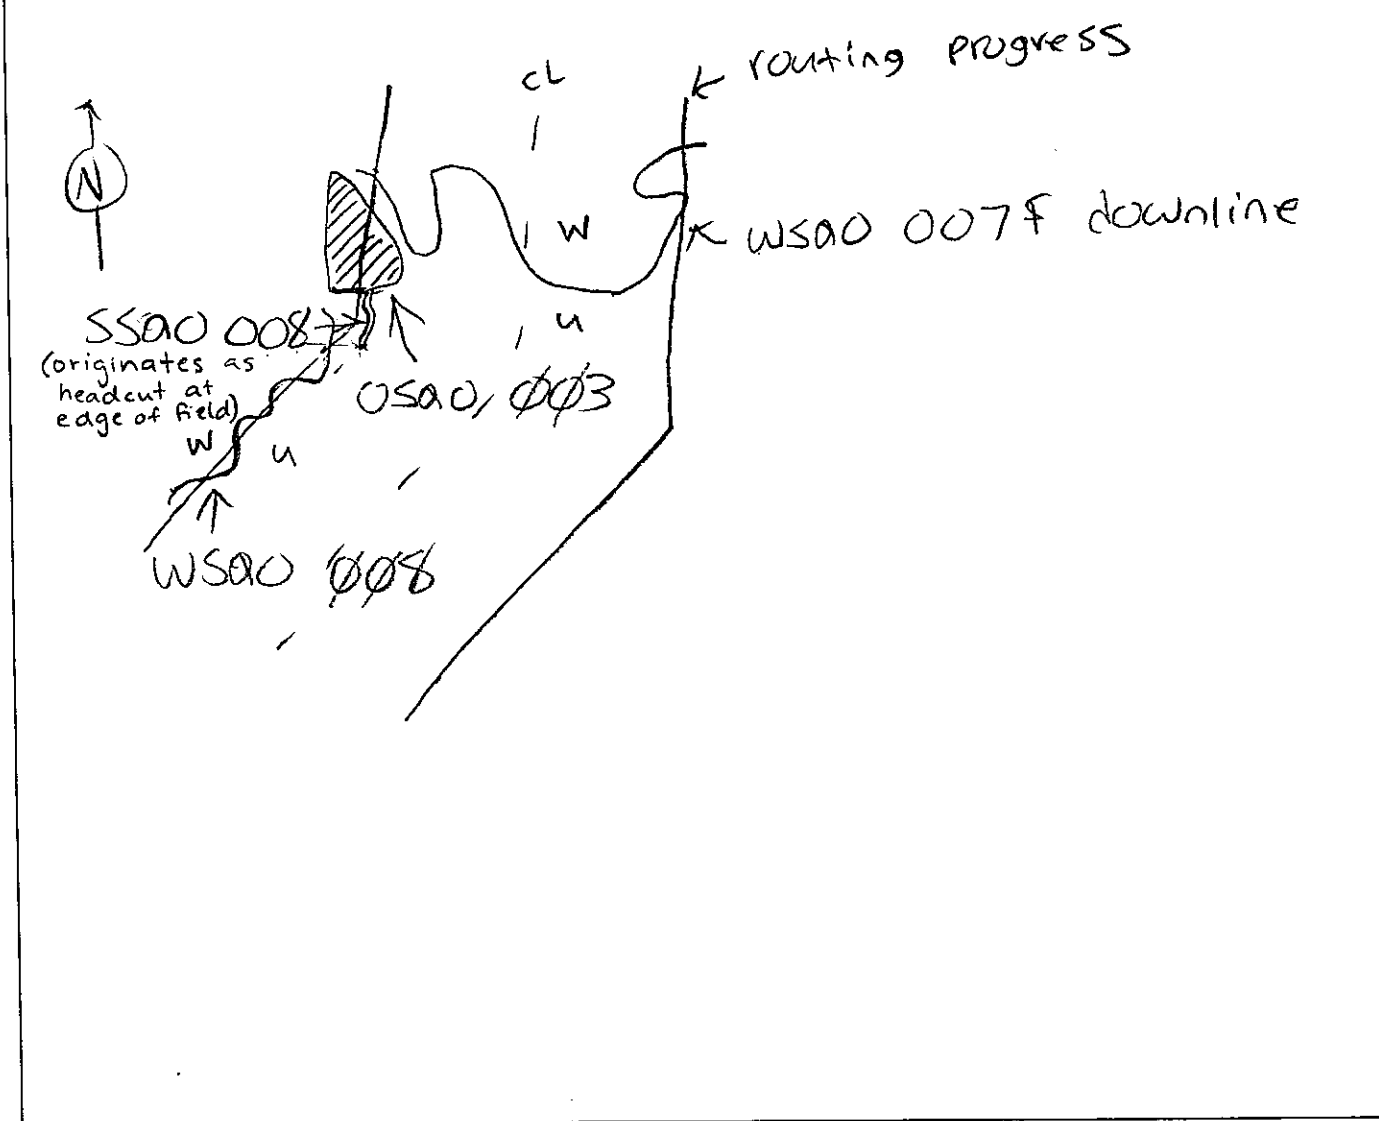 routing progress
CL
N
W
wsao 007f downline
u
SSao 008
(originates as
headcut at
edge of field)
osao 003
W
u
wsao 008